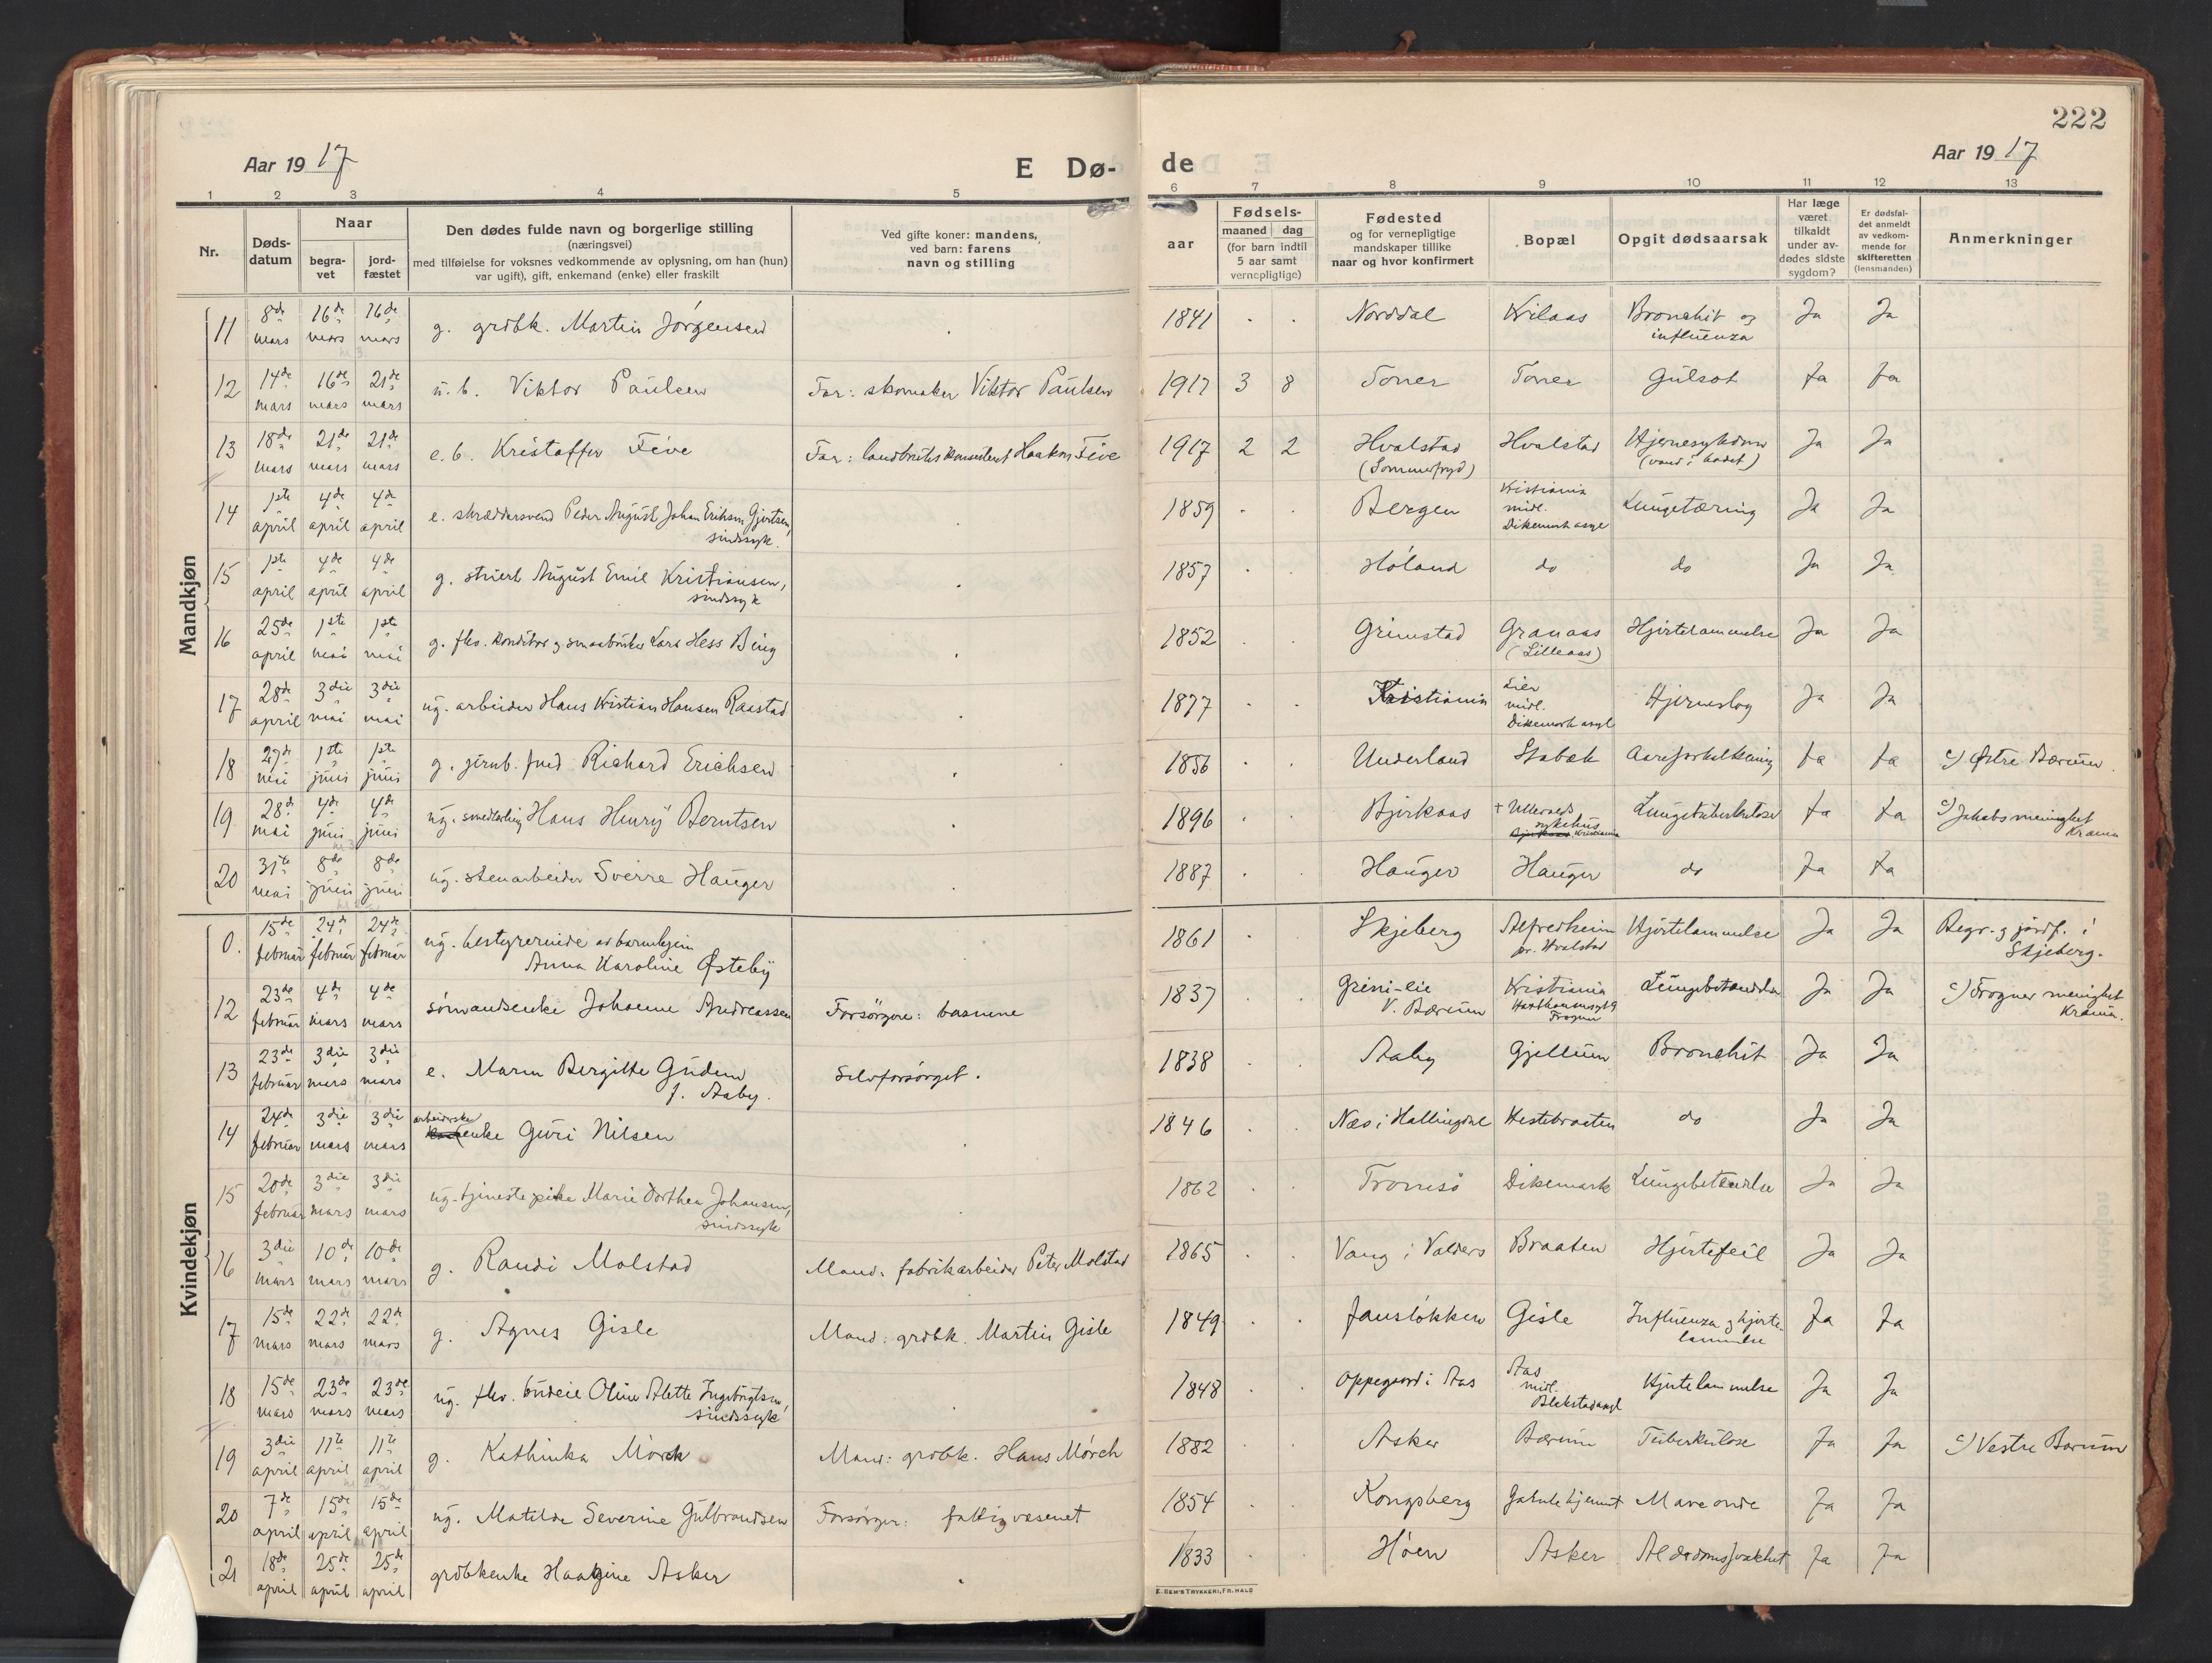 222
Aar 1917
E Dø-
de
Aar 1917
1 2 3 4 5 6 7 8 9 10 11 12 13
Nr.
Døds-
datum
Naar
begra-
vet
jord-
fæstet
Den dødes fulde navn og borgerlige stilling
(næringsvei)
med tilføielse for voksnes vedkommende av oplysning, om han (hun)
var ugift), gift, enkemand (enke) eller fraskilt
Ved gifte koner: mandens,
ved barn: farens
navn og stilling
aar
Fødsels-
maaned dag
(for barn indtil
5 aar samt
vernepligtige)
Fødested
og for vernepligtige
mandskaper tillike
naar og hvor konfirmert
Bopæl
Opgit dødsaarsak
Har læge
været
tilkaldt
under av-
dødes sidste
sygdom?
Er dødsfal-
det anmeldt
av vedkom-
mende for
skifteretten
(lensmanden)
Anmerkninger
Mandkjøn
11 8de mars 16de mars 16de mars g. grdbk. Martin Jørgensen 1841 Norddal Krilaas Bronchit og influenza Ja Ja
12 14de mars 16de mars 21de mars u. b. Viktor Paulsen Far: skomaker Viktor Paulsen 1917 3 8 Toner Toner Gulsot Ja Ja
13 18de mars 21de mars 21de mars e. b. Kristoffer Five Far: landbrukskonsulent Haakon Five 1917 2 2 Hvalstad (Sommerfryd) Hvalstad Hjernesykdom (vand i hodet) Ja Ja
14 1ste april 4de april 4de april e. skræddersvend Peder August Johan Erikson Gjertsen, sindssyk. 1859 Bergen Kristiania midl. Dikemark asyl Lungetæring Ja Ja
15 1ste april 4de april 4de april g. stuert August Emil Kristiansen, sindssyk 1857 Høland do do Ja Ja
16 25de april 1ste mai 1ste mai g. fhv. konditor og smaabruker Lars Hess Bing 1852 Grimstad Granaas (Lilleaas) Hjertelammelse Ja Ja
17 28de april 3die mai 3die mai ug. arbeider Hans Kristian Hansen Raastad 1877 Kristiania Lier midl. Dikemark asyl Hjerneslag Ja Ja
18 27de mai 1ste juni 1ste juni g. jernb. fuld Richard Erichsen 1856 Underland Stabæk Aareforkalkning Ja Ja c) Østre Bærum.
19 28de mai 4de juni 4de juni ug. smedlærling Hans Henry Berntsen 1896 Bjerkaas + Ullevaals sykehus Kristiania Lungetuberkulose Ja Ja c) Jakobs menighet Krania
20 31te mai 8de juni 8de juni ug. stenarbeider Sverre Hauger 1887 Hauger Hauger do Ja Ja
Kvindekjøn
0. 15de februar 24de februar 24de februar ug. bestyrerinde av barnehjem Anna Karoline Østeby 1861 Skjeberg Alfredheim pr. Hvalstad Hjertelammelse Ja Ja Begr. og jordf. i Skjeberg.
12 23de februar 4de mars 4de mars sømandsenke Johanne Andreassen Forsørgere: barnene 1837 Grini-eie V. Bærum Kristiania Frogner Lungebetændelse Ja Ja c) Frogner menighet Krania.
13 23de februar 3die mars 3die mars e. Maren Bergitte Gudem f. Aaby. Selvforsørget. 1838 Aaby Gjellum Bronchit Ja Ja
14 24de februar 3die mars 3die mars arbeiderske enke Guri Nilsen 1846 Næs i Hallingdal Hestebraaten do Ja Ja
15 20de februar 3die mars 3die mars ug. tjenestepike Marie Dorthea Johansen, sindssyk 1862 Tromsø Dikemark Lungebetændelse Ja Ja
16 3die mars 10de mars 10de mars g. Randi Molstad Mand: fabrikarbeider Peter Molstad 1865 Vang i Valders Braaten Hjertefeil Ja Ja
17 15de mars 22de mars 22de mars g. Agnes Gisle Mand: grdbk. Martin Gisle 1849 Jansløkken Gisle Influenza og hjertelammelse Ja Ja
18 15de mars 23de mars 23de mars ug. fhv. budeie Oline Alette Ingebrigtsen, sindssyk 1848 Oppegaard i Aas Aas midl. Blakstad asyl Hjertelammelse Ja Ja
19 3die april 11te april 11te april g. Kathinka Mørch Mand: grdbk. Hans Mørch 1882 Asker Bærum Tuberkulose Ja Ja c) Vestre Bærum
20 7de april 15de april 15de april ug. Matilde Severine Gulbrandsen Forsørger: fattigvæsenet 1854 Kongsberg Gamlehjemmet Maveonde Ja Ja
21 18de april 25de april 25de april grdbkenke Haagine Asker 1833 Høen Asker Alderdomssvakhet Ja Ja
E. SEM'S TRYKKERI, FR. HALD